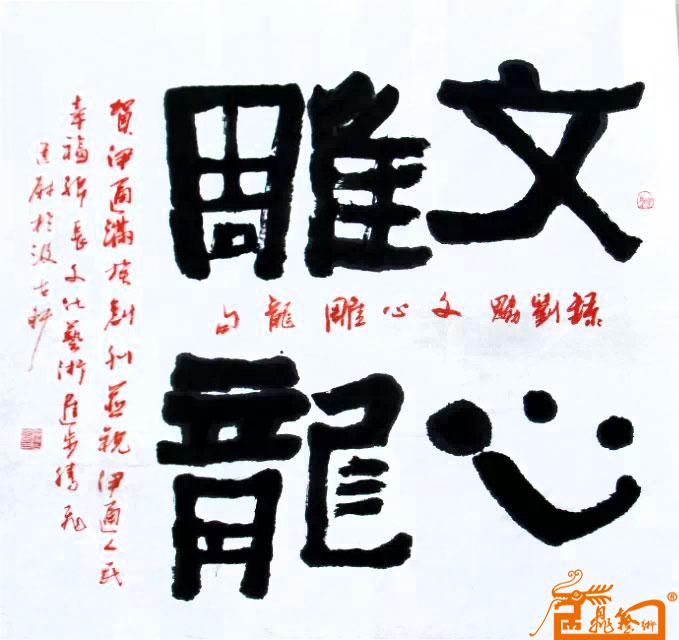 文心
雕龍
錄劉勰文心雕龍句
賀伊通滿族創刊並祝伊通人民
幸福綿長文化藝術進步騰飛
於汲古軒
藝術
®